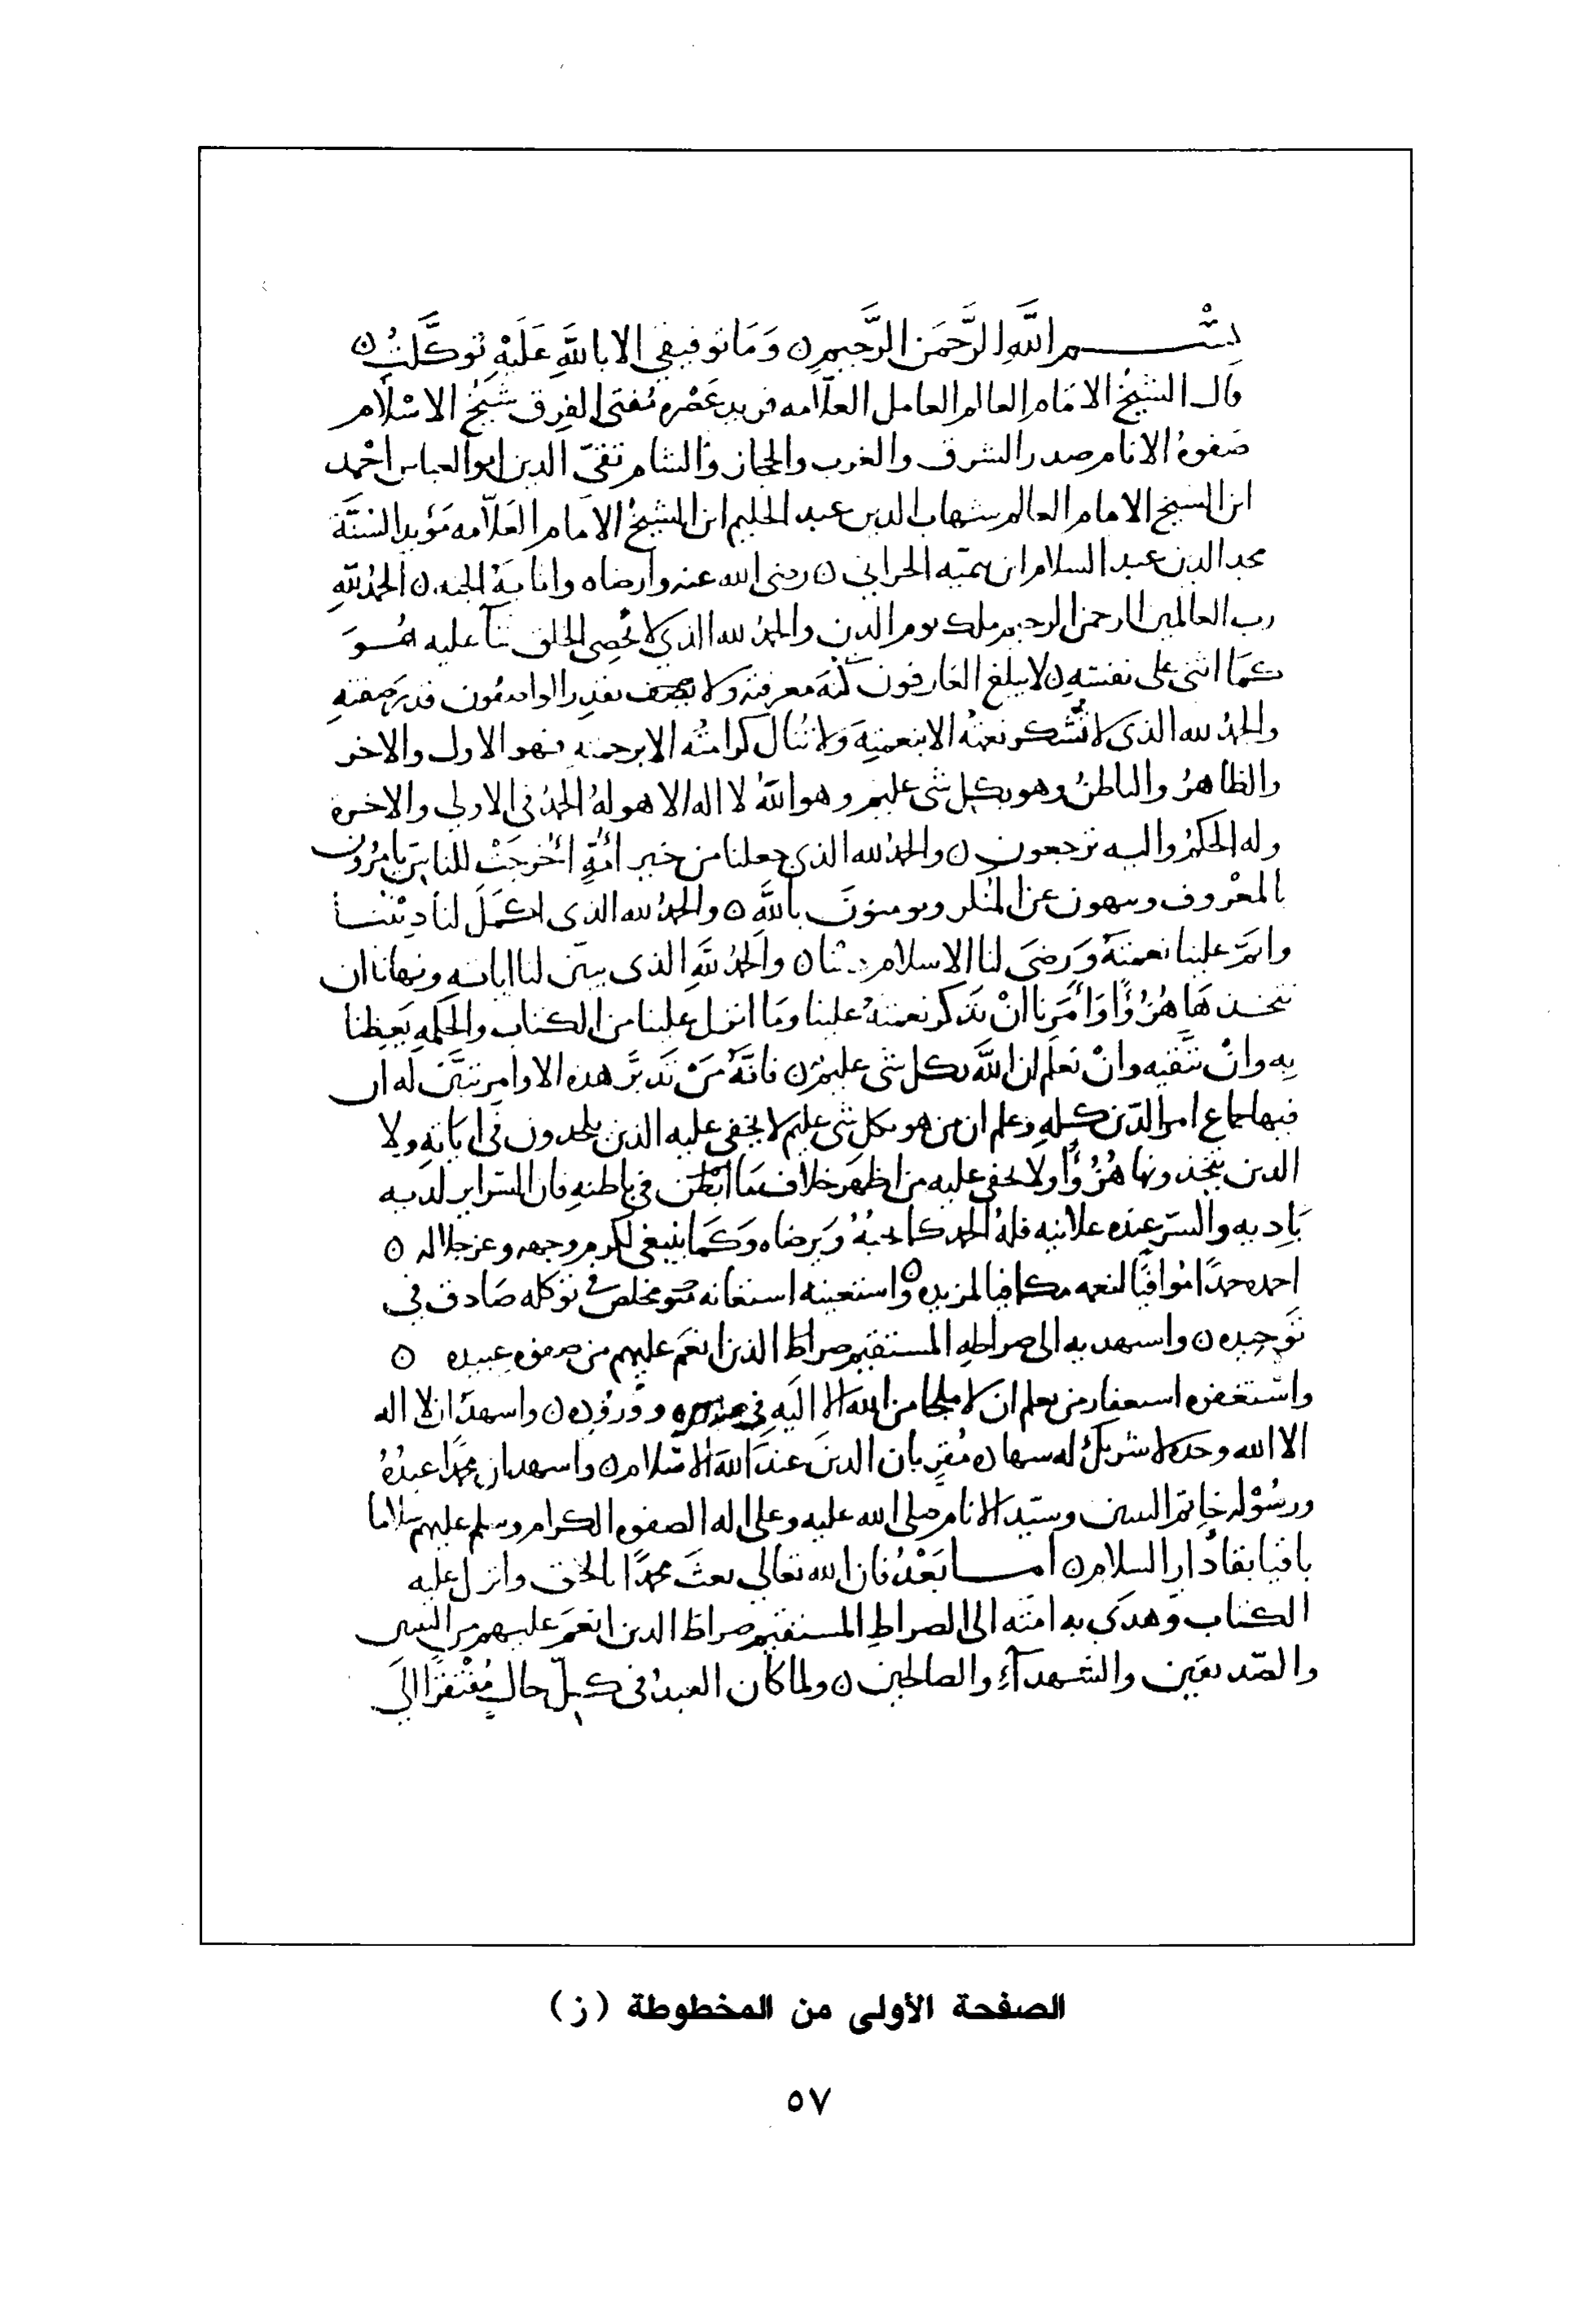 بسم اللَّه الرَّحمَن الرَّحيم ن وَمَا توفيقي الا باللَّهِ عَلَيْهِ تَوكَّلتُ ن
قال الشيخُ الامَام العالم العامل العلّامه فريد عَصْره مُفتى الفِرق شَيخُ الاسْلَام
صَفوةُ الانام صدر الشرق والغرب والحجاز والشام تقىّ الدين ابو العباس احْمد
ابن الشيخ الامام العالم شهاب الدين عبد الحليم ابن الشيخُ الامَام العَلّامه مَؤيد السُنَّة
مجد الدين عبد السلام ابن تيميّه الحراني ن رضى الله عنه وارضاه واثابهُ الجنه ن الحَمدُ للَّهِ
رب العالمين الرحمن الرحيم ملك يوم الدين والحمدُ لله الذي لا يُحْصِى الخلق ثنآ عليه هُــوَ
كمَا اثنى على نفسه ن لا يبلغ العَارفون كُنهَ معرفته ولا يقدر الواصفون قدرَ صِفته
والحمدُ لله الذى لا تُشْكر نعمتُه الا بنعمتِهَ وَلا تُنال كرامتُه الا برحمته فهو الاول والاخر
والظاهرُ والباطنُ وهو بكل شى عليم وهو اللهُ لا اله الا هو لهُ الحمدُ فى الاولي والاخرة
وله الحكمُ واليه ترجعون ن والحمدُ لله الذي جعلنا من خير امّةٍ اخْرجَتْ للناس يامرُون
بالمعْروف وينهون عن المنكر ويومنونَ باللَّهِ ن والحمدُ لله الذى اكمَلَ لنا دِيْنَنـا
واتمّ علينا نعمتَهُ وَرضىَ لنا الاسلام دينا ن والحمدُ للَّهِ الذى بيّن لنا اياته ونهانا ان
نتخـذهَا هُزُوًا وَامَرنا انْ نذكر نعمتهُ علينا ومَا انزل علينا من الكتاب والحِكمهِ يَعِظنا
بِه وانْ نتَّقيه وانْ نعلَم ان اللَّهَ بكل شى عليمٌ ن فانَّهُ مَنْ تَدبّرَ هذه الاوامِر تبَيَّن لَه ان
فيها جماع امر الدّين كلهِ وعلم ان من هو بكل شى عليم لا يخفى عليه الذين يلحدون فى ايَاتِهِ ولا
الذين يتخذونها هُزُوًا ولا يخفى عليه من اظهَر خلاف مَا ابْطَن فى باطنهِ فان السّراير لديه
بَاديه والسرّ عنده علانيه فلهُ الحمد كما يحبُهُ وَيرضاه وَكَمَا ينبغى لكرم وجهه وعز جلاله ن
احمده حمدًا مُوافيًا لنعمه مكافيا لمزيده ن واستعينه استعانه مخلص فى توكله صَادق فى
تَوحيده ن واستهديه الى صراطهِ المستقيم صراط الذين انعَم عليهم من صفوه عبيده ن
واسْتغفره استغفار من يعلم ان لا ملجا من الله الا اليَهِ فى صدوره ووُرُوده ن واشهدُ ان لا اله
الا الله وحده لا شريكُ له شهاده مُقرٍ بان الدينَ عندَ اللَّه الاسْلام ن واشهد ان محمدًا عبدُهُ
ورسُوْله خاتم النبيين وسيّد الانام صلى الله عليه وعلى اله الصفوه الكرام وسلم عليهم سلاما
باقيا ببقا دَار السلام ن امـــا بَعْدُ فان الله تعالى بعثَ محمدًا بالحق وانزل عليه
الكتاب وَهدَى به امّته الى الصراطِ المستقيم صراط الذين انعَمَ عليهم من النبيين
والصّديقين والشهدآءِ والصالحين ن ولما كان العبدُ فى كلّ حالٍ مُفْتقرًا الَى
الصفحة الأولى من المخطوطة (ز)
٥٧